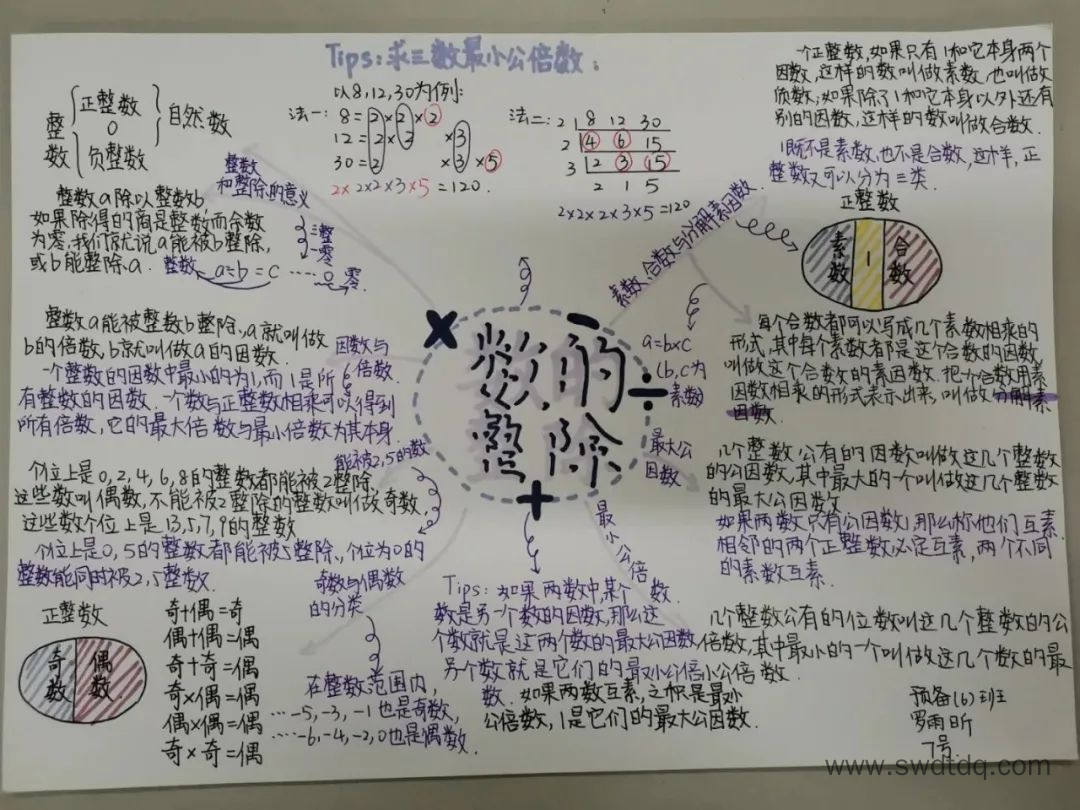 Tips:求三数最小公倍数:
以8,12,30为例:
法一: 8=2×2×2
12=2×2 ×3
30=2 ×3×5
2×2×2×3×5=120.
法二: 2 8 12 30
2 4 6 15
3 2 3 15
2 1 5
2×2×2×3×5=120
整数
正整数
0
负整数
自然数
整数
和整除的意义
整数a除以整数b
如果除得的商是整数而余数
为零,我们就说a能被b整除,
或b能整除a.
三整
一零
整数 a÷b=c ……0 零
整数a能被整数b整除,a就叫做
b的倍数,b就叫做a的因数.
因数与
倍数
一个整数的因数中最小的为1,而1是所
有整数的因数.一个数与正整数相乘可以得到
所有倍数,它的最大倍数与最小倍数为其本身.
能被2,5的数
个位上是0,2,4,6,8的整数都能被2整除,
这些数叫偶数,不能被2整除的整数叫做奇数,
这些数个位上是1,3,5,7,9的整数
个位上是0,5的整数都能被5整除,个位为0的
整数能同时被2,5整数.
奇数与偶数
的分类
正整数
奇数
偶数
奇+偶=奇
偶+偶=偶
奇+奇=偶
奇×偶=偶
偶×偶=偶
奇×奇=偶
在整数范围内,
……-5,-3,-1也是奇数,
……-6,-4,-2,0也是偶数.
数的
整除
× − ÷ +
素数、合数与分解素因数
一个正整数,如果只有1和它本身两个
因数,这样的数叫做素数,也叫做
质数;如果除了1和它本身以外还有
别的因数,这样的数叫做合数.
1既不是素数,也不是合数,这样,正
整数又可以分为三类.
正整数
素数
1
合数
a=b×c
(b,c为
素数)
每个合数都可以写成几个素数相乘的
形式,其中每个素数都是这个合数的因数,
叫做这个合数的素因数.把一个合数用素
因数相乘的形式表示出来,叫做分解素
因数.
最大公
因数
几个整数公有的因数叫做这几个整数
的公因数,其中最大的一个叫做这几个整数
的最大公因数
如果两数只有公因数1,那么称他们互素
相邻的两个正整数必定互素,两个不同
的素数互素.
最小公倍数
几个整数公有的位数叫这几个整数的公
倍数,其中最小的一个叫做这几个数的最
小公倍数
Tips:如果两数中,某个
数是另一个数的因数,那么这
个数就是这两个数的最大公因数,
另个数就是它们的最小公倍
数.
如果两数互素,之积是最小
公倍数,1是它们的最大公因数.
预备(6)班
罗雨昕
7号.
www.swdtdq.com